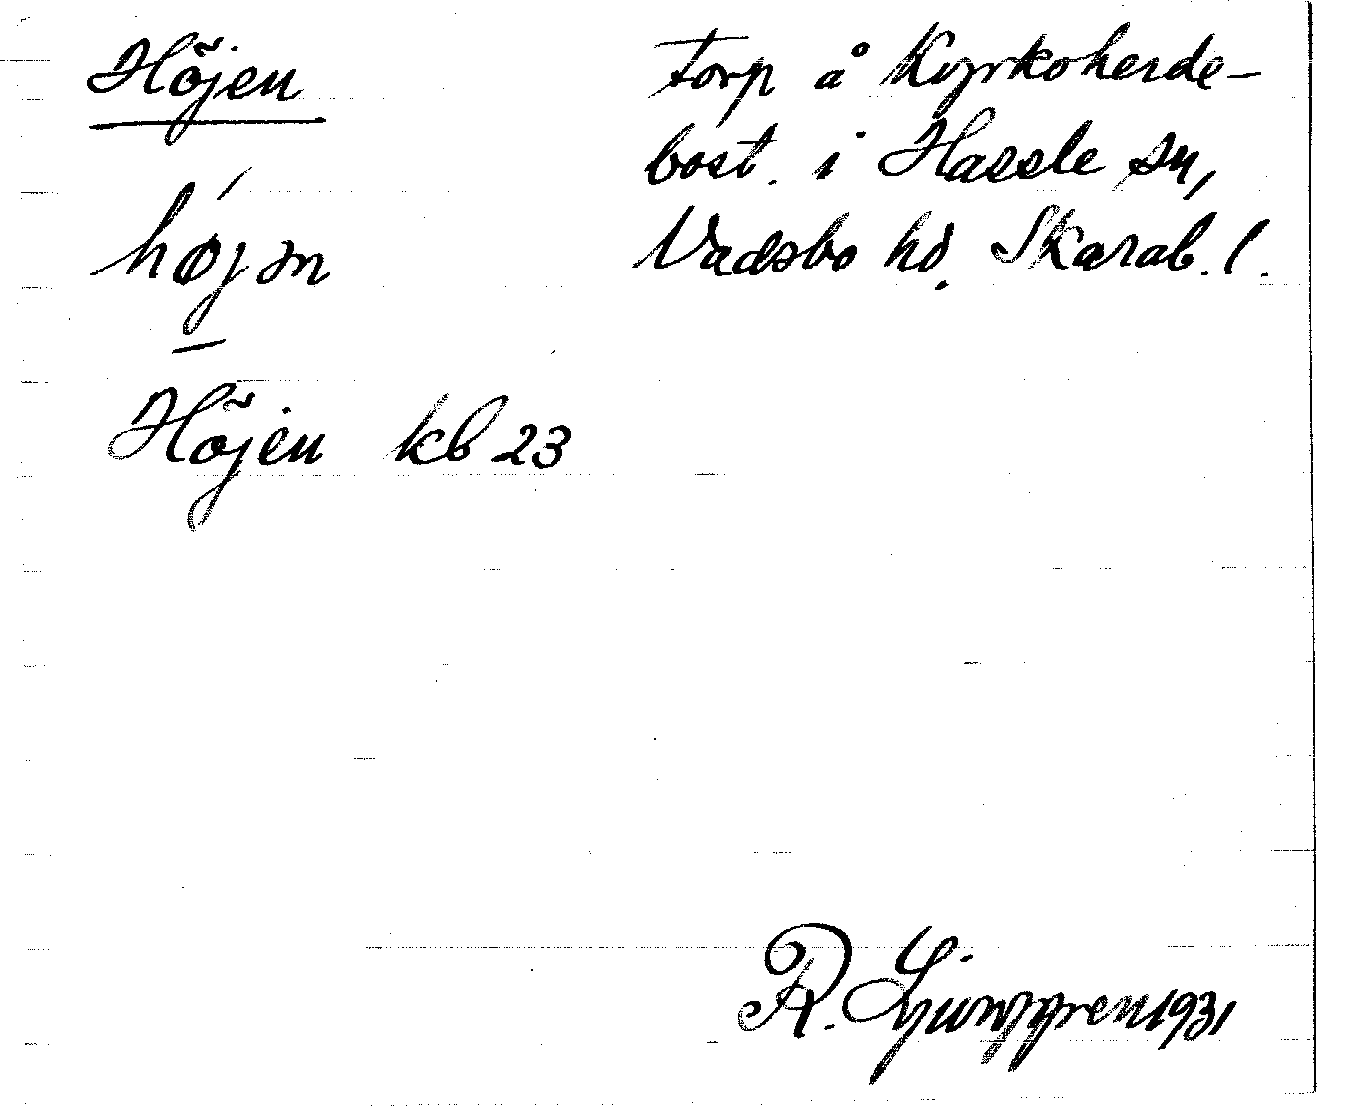 Höjen
Torp å Kyrkoherde-
bost. i Hassle sn,
Vadsbo hd. Skarab. l.
Höjen kb 23
R. Ljunggren 1931